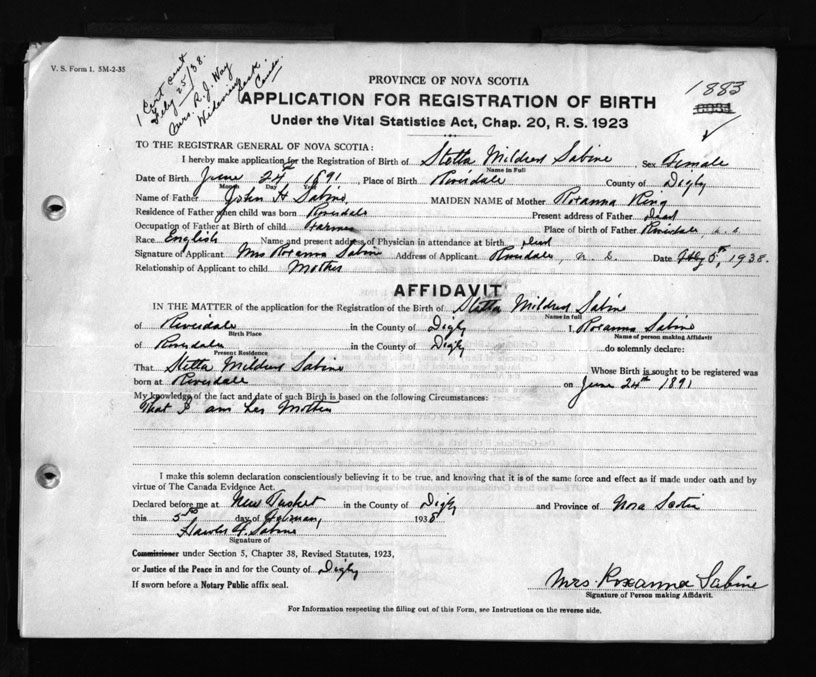 V. S. Form 1. 5M-2-35
1 Cert sent
Feby 25/38.
R. J. Way
1883
PROVINCE OF NOVA SCOTIA
APPLICATION FOR REGISTRATION OF BIRTH
Under the Vital Statistics Act, Chap. 20, R. S. 1923
TO THE REGISTRAR GENERAL OF NOVA SCOTIA:
I hereby make application for the Registration of Birth of Stella Mildred Sabine, Sex Female
Name in Full
Date of Birth June 24th 1891, Place of Birth Riverdale County of Digby
Month Day Year
Name of Father John H Sabine, MAIDEN NAME of Mother Roxanna King
Residence of Father when child was born Riverdale Present address of Father Dead
Occupation of Father at Birth of child Farmer Place of birth of Father Riverdale, N. S.
Race English Name and present address of Physician in attendance at birth Dead
Signature of Applicant Mrs Roxanna Sabine Address of Applicant Riverdale, N. S. Date Feby 5th, 1938.
Relationship of Applicant to child Mother
AFFIDAVIT
IN THE MATTER of the application for the Registration of the Birth of Stella Mildred Sabine
Name in full
of Riverdale in the County of Digby I, Roxanna Sabine
Birth Place Name of person making Affidavit
of Riverdale in the County of Digby do solemnly declare:
Present Residence
That Stella Mildred Sabine Whose Birth is sought to be registered was
born at Riverdale on June 24th 1891
My knowledge of the fact and date of such Birth is based on the following Circumstances:
That I am her Mother
I make this solemn declaration conscientiously believing it to be true, and knowing that it is of the same force and effect as if made under oath and by
virtue of The Canada Evidence Act.
Declared before me at New Tusket in the County of Digby and Province of Nova Scotia
this 5th day of February, 1938
H. Sabine
Signature of
Commissioner under Section 5, Chapter 38, Revised Statutes, 1923,
or Justice of the Peace in and for the County of Digby
If sworn before a Notary Public affix seal.
Mrs. Roxanna Sabine
Signature of Person making Affidavit.
For Information respecting the filling out of this Form, see Instructions on the reverse side.